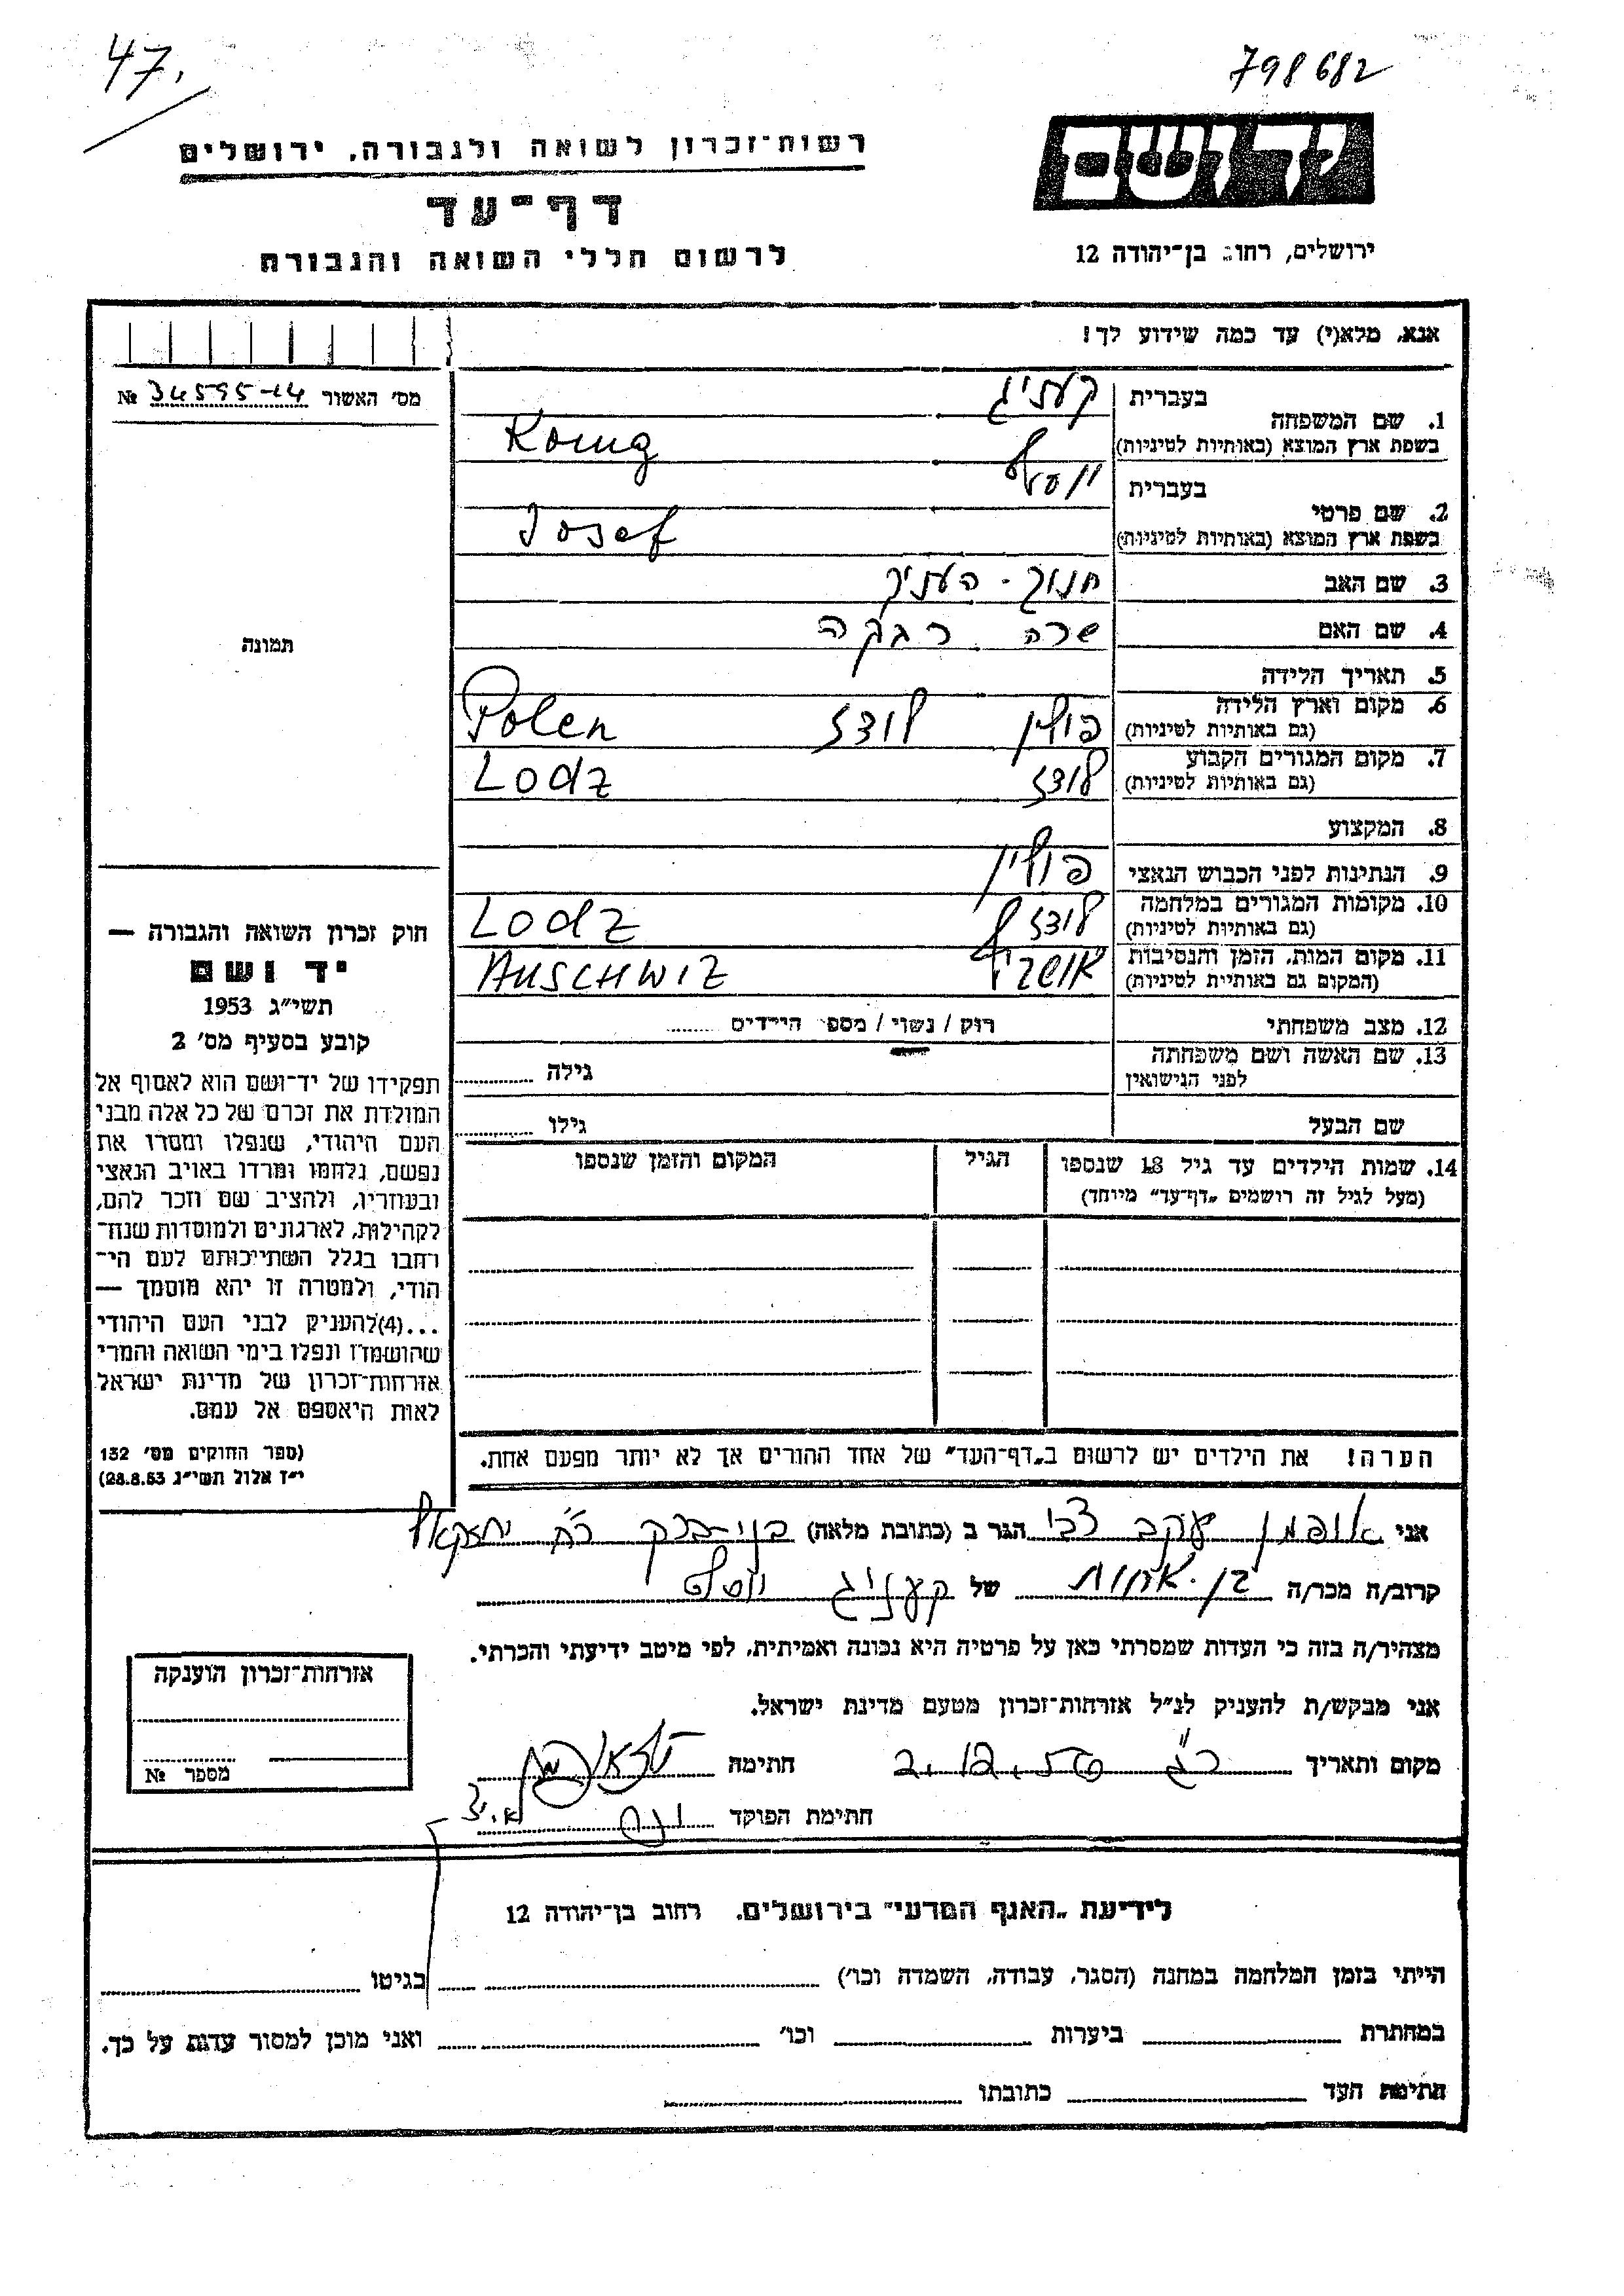 47.
798682
רשות־זכרון לשואה ולגבורה, ירושלים
יד ושם
דף־עד
לרשום חללי השואה והגבורה
ירושלים, רחוב בן־יהודה 12
אנא, מלא(י) עד כמה שידוע לך!
מס' האשור 34595-14 №
1. שם המשפחה
בעברית קעניג
בשפת ארץ המוצא (באותיות לטיניות) König
2. שם פרטי
בעברית יוסף
בשפת ארץ המוצא (באותיות לטיניות) Josef
3. שם האב חנוך־העניך
4. שם האם שרה רבקה
5. תאריך הלידה
6. מקום וארץ הלידה פולין לודז Polen
(גם באותיות לטיניות)
7. מקום המגורים הקבוע לודז Lodz
(גם באותיות לטיניות)
8. המקצוע
9. הנתינות לפני הכבוש הנאצי פולין
10. מקומות המגורים במלחמה לודז Lodz
(גם באותיות לטיניות)
11. מקום המות, הזמן והנסיבות AUSCHWIZ
(המקום גם באותיות לטיניות)
12. מצב משפחתי רוק / נשוי / מספר הילדים
13. שם האשה ושם משפחתה גילה
לפני הנישואין
שם הבעל גילו
14. שמות הילדים עד גיל 18 שנספו הגיל המקום והזמן שנספו
(מעל לגיל זה רושמים „דף־עד" מיוחד)
הערה! את הילדים יש לרשום ב„דף־העד" של אחד ההורים אך לא יותר מפעם אחת.
תמונה
חוק זכרון השואה והגבורה —
יד ושם
תשי"ג 1953
קובע בסעיף מס' 2
תפקידו של יד־ושם הוא לאסוף אל
המולדת את זכרם של כל אלה מבני
העם היהודי, שנפלו ומסרו את
נפשם, נלחמו ומרדו באויב הנאצי
ובעוזריו, ולהציב שם וזכר להם,
לקהילות, לארגונים ולמוסדות שנח־
רבו בגלל השתייכותם לעם הי־
הודי, ולמטרה זו יהא מוסמך —
...(4)להעניק לבני העם היהודי
שהושמדו ונפלו בימי השואה והמרי
אזרחות־זכרון של מדינת ישראל
לאות היאספם אל עמם.
(ספר החוקים מס' 132
י"ז אלול תשי"ג 28.8.53)
אני אופמן יעקב צבי הגר ב (כתובת מלאה) בני־ברק רח' יחזקאל
קרוב/ה מכר/ה בן־אחות של קעניג יוסף
מצהיר/ה בזה כי העדות שמסרתי כאן על פרטיה היא נכונה ואמיתית, לפי מיטב ידיעתי והכרתי.
אני מבקש/ת להעניק לנ"ל אזרחות־זכרון מטעם מדינת ישראל.
מקום ותאריך חתימה
חתימת הפוקד
אזרחות־זכרון הוענקה
מספר №
לידיעת „האגף המדעי" בירושלים, רחוב בן־יהודה 12
הייתי בזמן המלחמה במחנה (הסגר, עבודה, השמדה וכו') בגיטו
במחתרת ביערות וכו' ואני מוכן למסור עדות על כך.
חתימת העד כתובתו